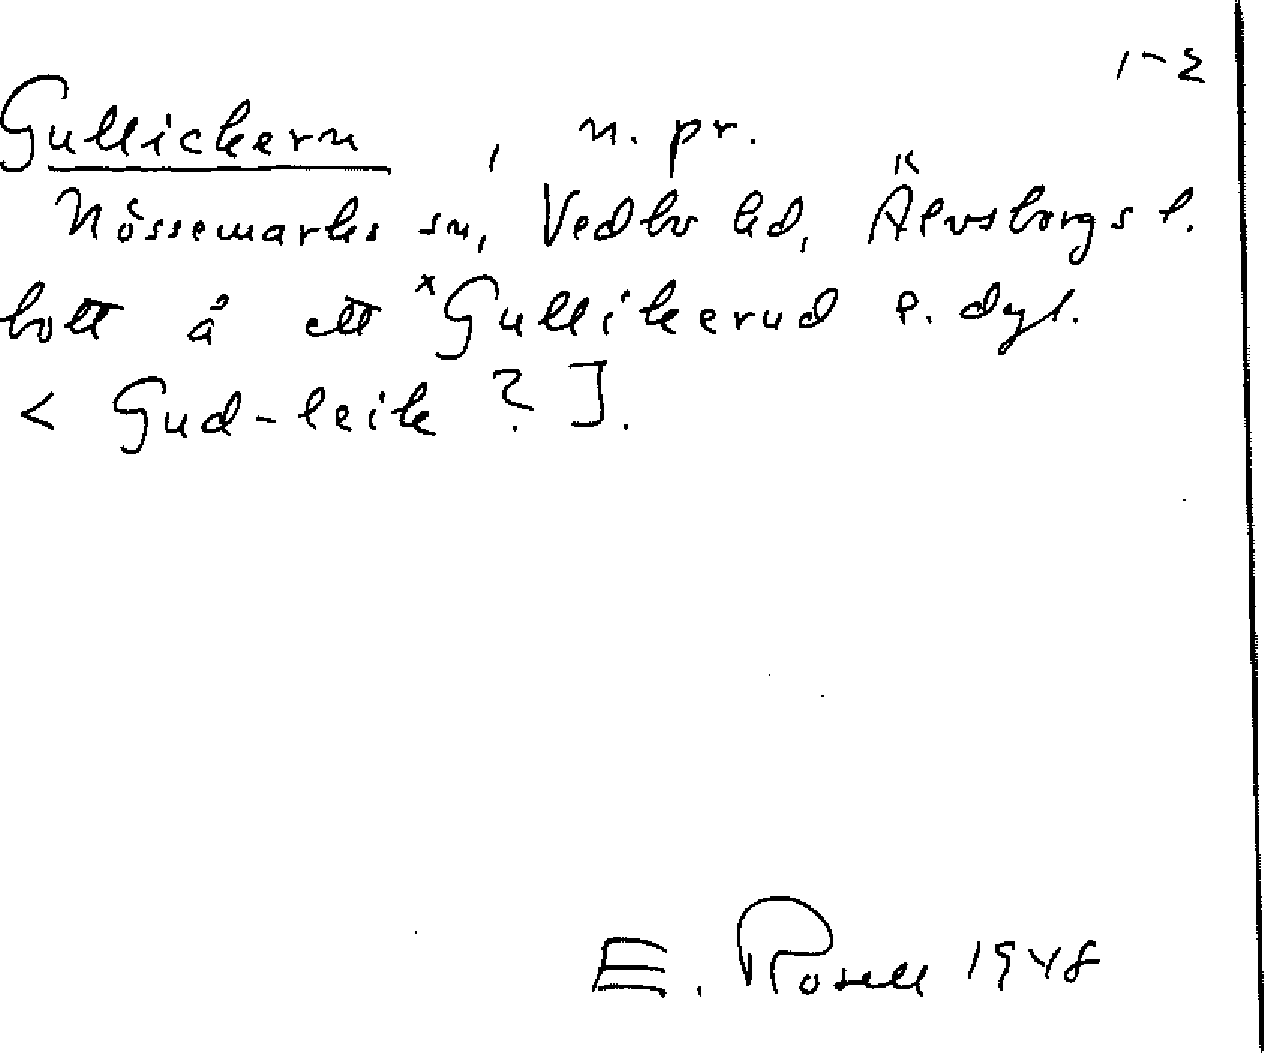 1-2
Gullickern, n. pr.
Nössemarks sn, Vedbo hd, Älvsborgs l.
bott å ett *Gullikerud e. dyl.
< Gud-leik ? ].
E. Rosell 1948